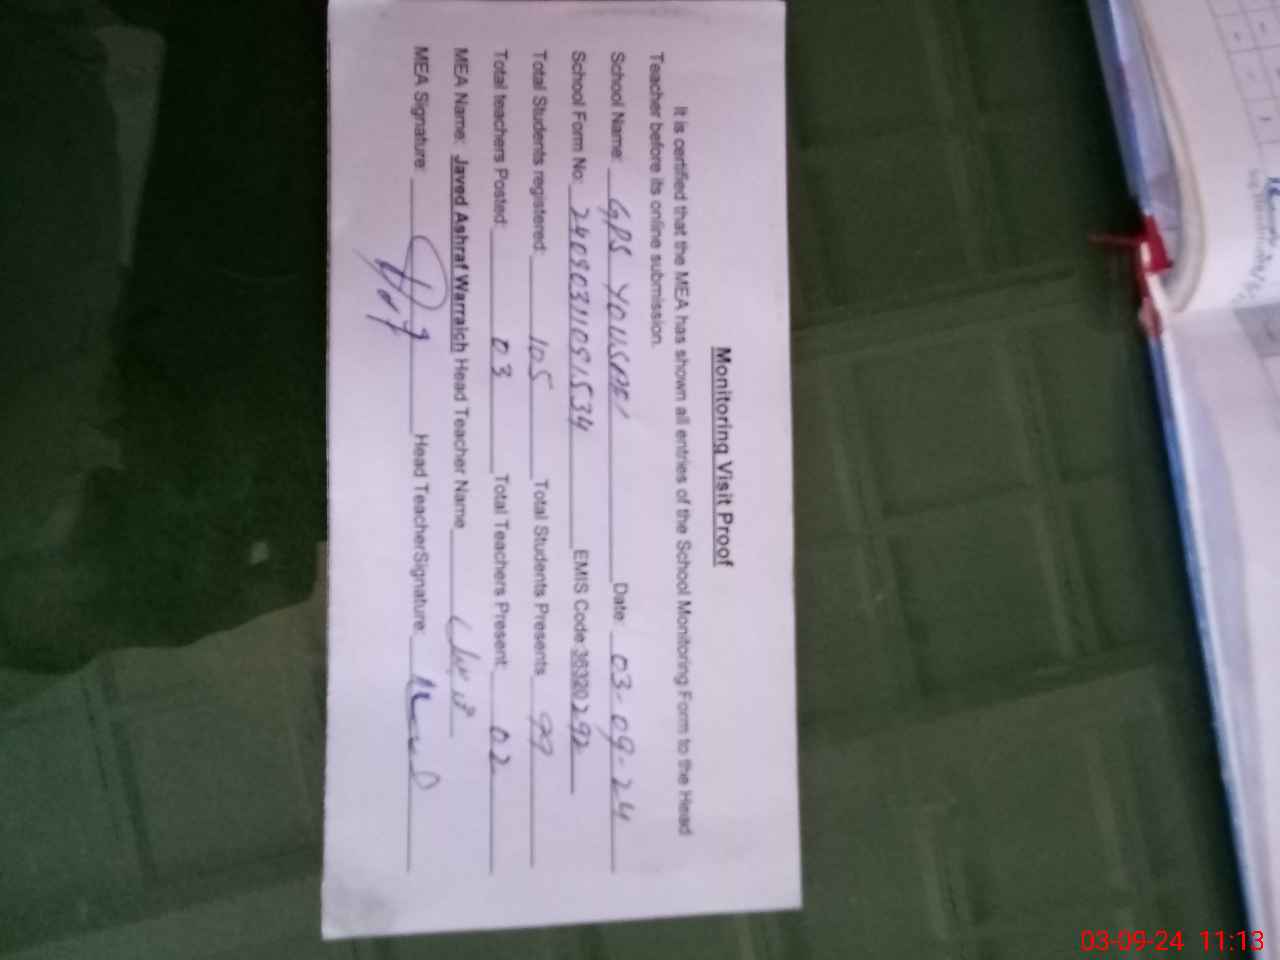 Monitoring Visit Proof
It is certified that the MEA has shown all entries of the School Monitoring Form to the Head
Teacher before its online submission.
School Name: GPS YOUSAFI Date: 03-09-24
School Form No: 24090311091534 EMIS Code 36320292
Total Students registered: 105 Total Students Presents 99
Total teachers Posted: 03 Total Teachers Present: 02
MEA Name: Javed Ashraf Warraich Head Teacher Name
MEA Signature: Head TeacherSignature:
03-09-24 11:13